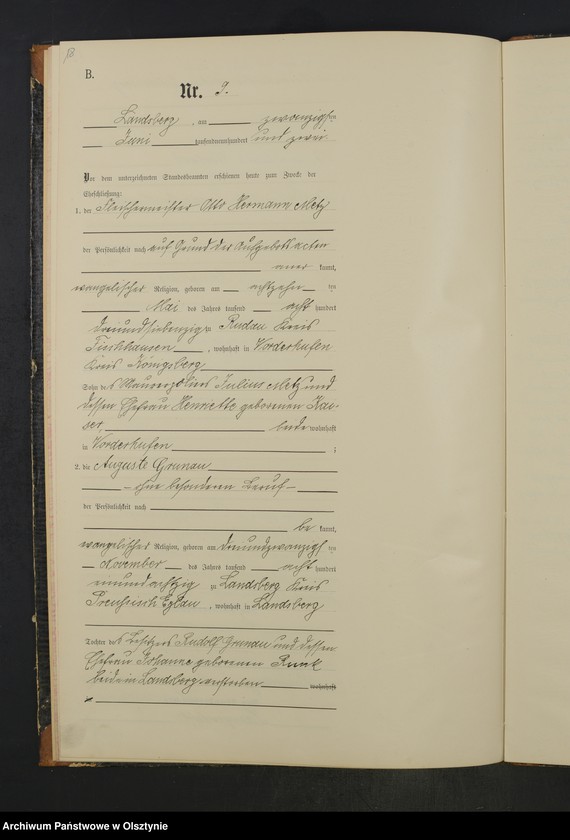 B.
Nr. 9.
Landsberg, am zwanzigsten
Juni tausendneunhundert und zwei
Vor dem unterzeichneten Standesbeamten erschienen heute zum Zwecke der
Eheschließung:
1. der Fleischermeister Otto Hermann Metz
der Persönlichkeit nach auf Grund der Aufgebotsacten
aner kannt,
evangelischer Religion, geboren am achtzehn ten
Mai des Jahres tausend acht hundert
dreiundsiebenzig zu Rudau Kreis
Fischhausen, wohnhaft in Vorderhufen
Kreis Königsberg
Sohn des Maurerpoliers Julius Metz und
dessen Ehefrau Henriette geborenen Kai-
ser, beide wohnhaft
in Vorderhufen;
2. die Auguste Grunau
- ohne besonderen Beruf -
der Persönlichkeit nach
be kannt,
evangelischer Religion, geboren am dreiundzwanzigs ten
November des Jahres tausend acht hundert
achtzig zu Landsberg Kreis
Preußisch Eylau, wohnhaft in Landsberg
Tochter des Besitzers Rudolf Grunau und dessen
Ehefrau Johanne geborenen
beide in Landsberg verstorben wohnhaft
Archiwum Państwowe w Olsztynie